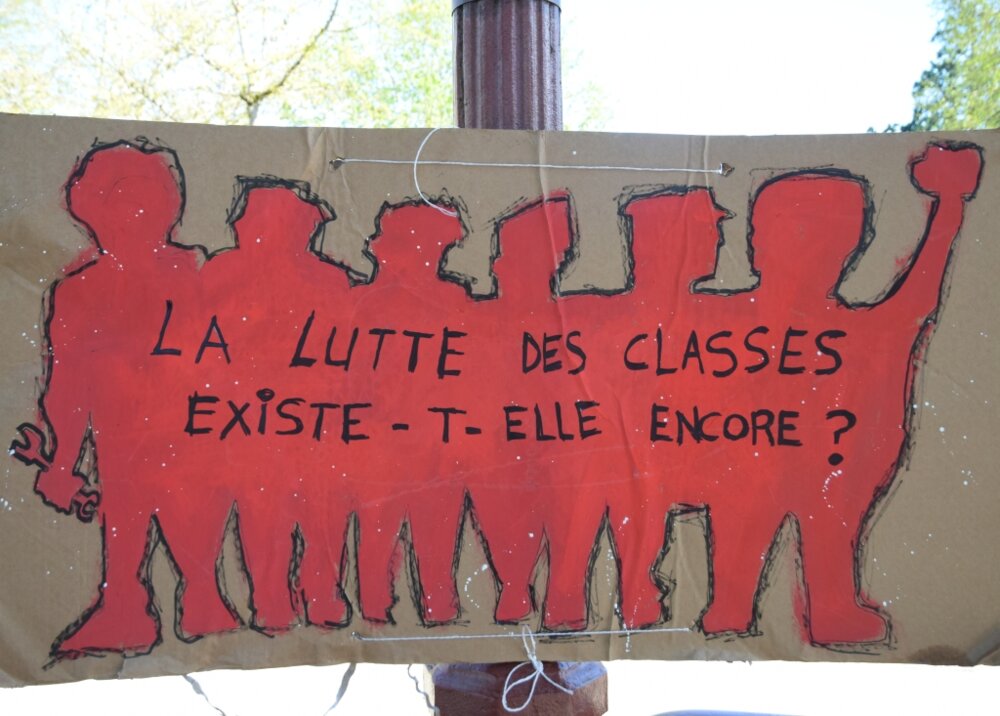 LA LUTTE DES CLASSES
EXiSTE - T - ELLE ENCORE ?